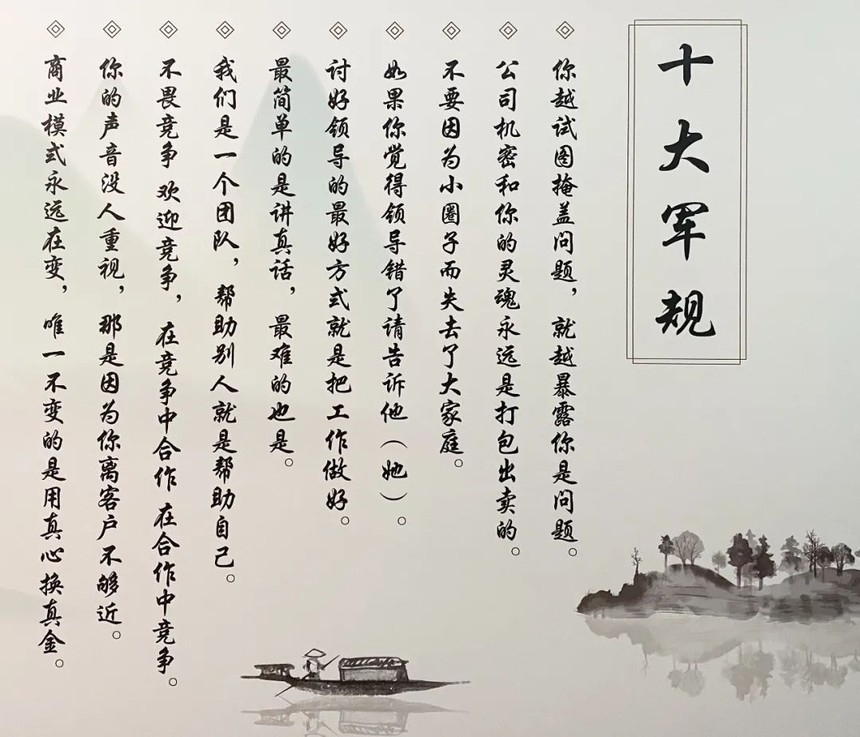 十大军规
你越试图掩盖问题，就越暴露你是问题。
公司机密和你的灵魂永远是打包出卖的。
不要因为小圈子而失去了大家庭。
如果你觉得领导错了请告诉他（她）。
讨好领导的最好方式就是把工作做好。
最简单的是讲真话，最难的也是。
我们是一个团队，帮助别人就是帮助自己。
不畏竞争 欢迎竞争，在竞争中合作 在合作中竞争。
你的声音没人重视，那是因为你离客户不够近。
商业模式永远在变，唯一不变的是用真心换真金。